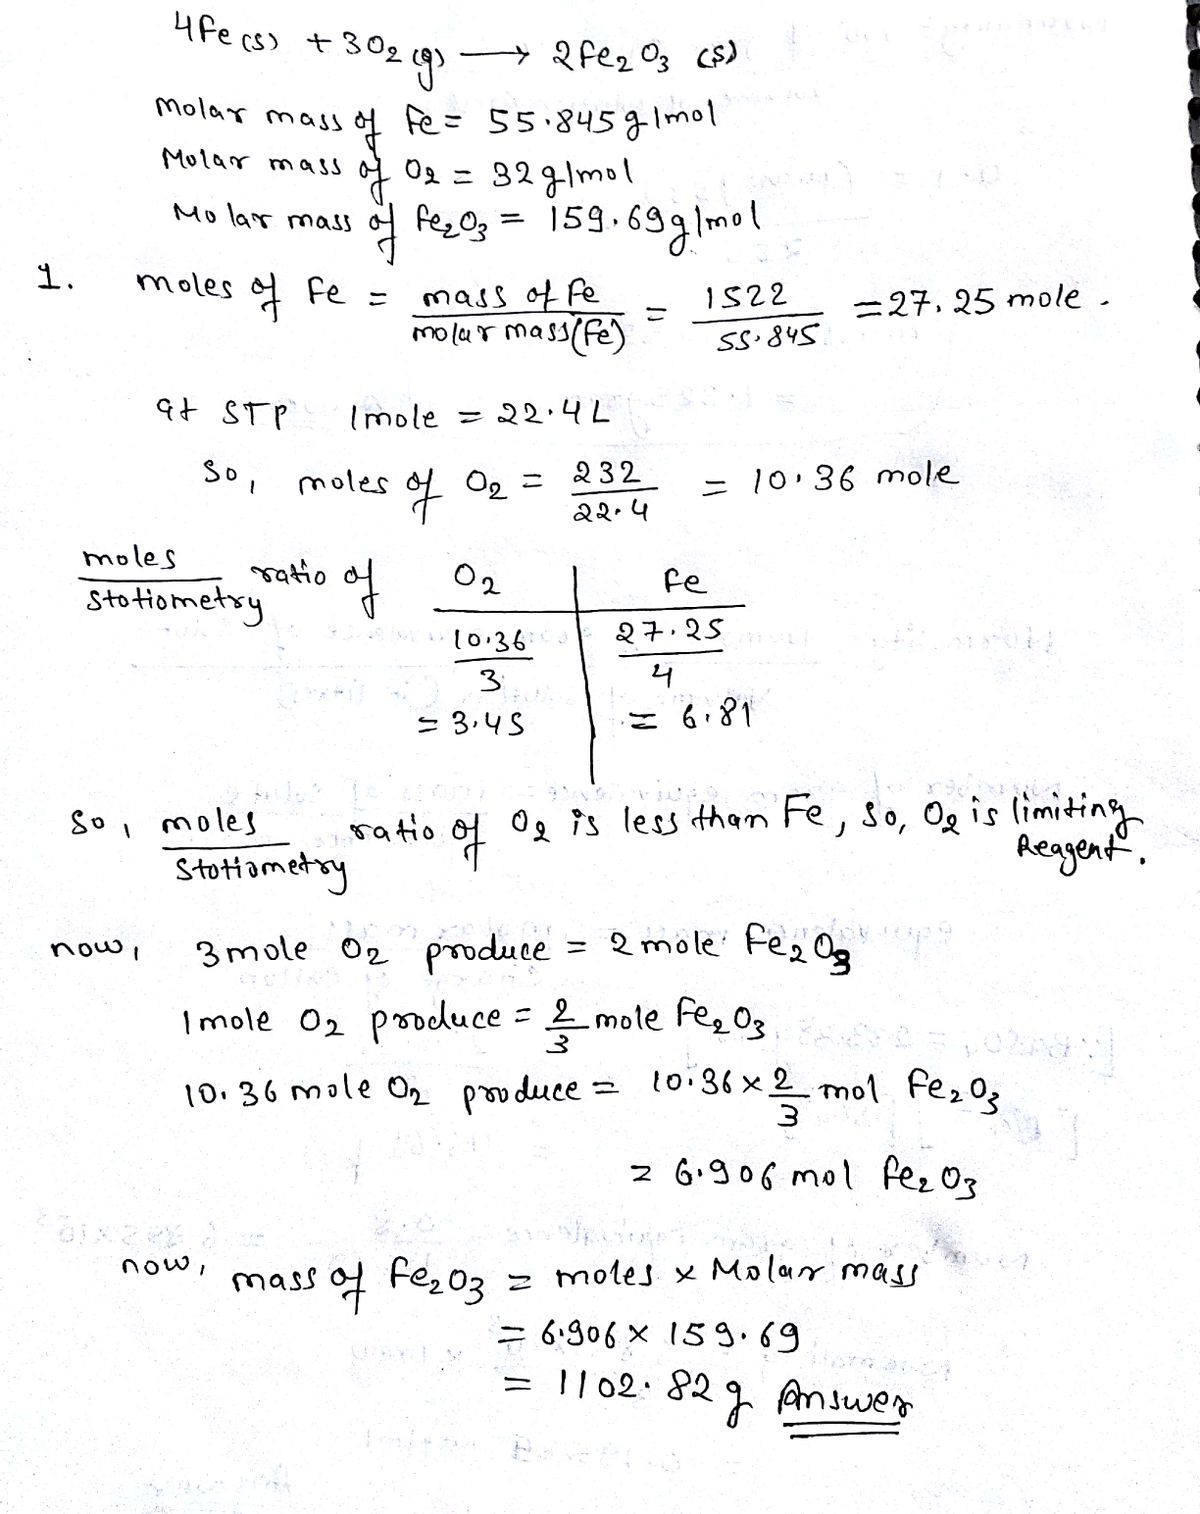 4Fe(s) + 3O2(g) → 2Fe2O3 (s)
Molar mass of Fe = 55.845g/mol
Molar mass of O2 = 32g/mol
Molar mass of Fe2O3 = 159.69g/mol
1. moles of Fe = mass of Fe / molar mass(Fe) = 1522 / 55.845 = 27.25 mole.
at STP 1mole = 22.4L
So, moles of O2 = 232 / 22.4 = 10.36 mole
moles / Stotiometry ratio of O2 | Fe
10.36 / 3 | 27.25 / 4
= 3.45 | = 6.81
So, moles / Stotiometry ratio of O2 is less than Fe, So, O2 is limiting
Reagent.
now, 3mole O2 produce = 2mole Fe2O3
1mole O2 produce = 2/3 mole Fe2O3
10.36 mole O2 produce = 10.36 × 2/3 mol Fe2O3
= 6.906 mol Fe2O3
now, mass of Fe2O3 = moles × Molar mass
= 6.906 × 159.69
= 1102.82g Answer